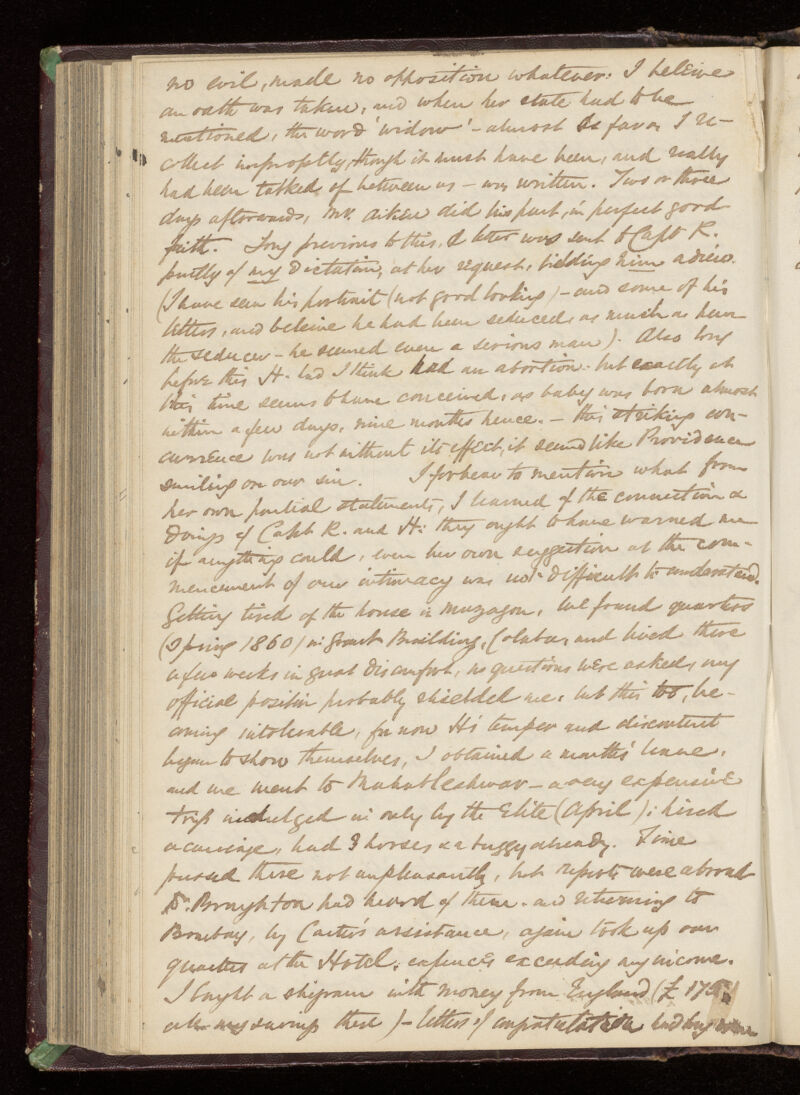 no evil, made no opposition whatever: I beleive
an oath was taken, and when her state had to be
mentioned, the word 'widow' - almost so far as I re-
collect impromptly, though it must have been, and really
had been talked of between us - was written. Two or three
days afterwards, Mr. Aitken did his part, in perfect good
faith. Long previous to this, a letter was sent to Capt R.
partly of my dictation, at her request, bidding him adieu.
(I have seen his portrait (not good looking) - and some of his
letters, and beleive he had been seduced, as much as been
the seducer - he seemed even a serious man). Also long
before this H. had I think had an abortion - but exactly at
this time seems to have conceived, as baby was born almost
within a few days, nine months hence. - this striking con-
currence was not without its effect, it seemd like Providence
smiling on our sin. I forbear to mention what from
her own partial statements, I learned of the connection &
doings of Capt R. and H: they ought to have warned me
if anything could, even her own suggestion at the com-
mencement of our intimacy was not difficult to understand.
Getting tired of the house in Mazagon, we found quarters
(Spring 1860) in Grant Building, Colaba, and lived there
a few weeks in great discomfort, no questions were asked, my
official position probably shielded me, but this too, be-
coming intolerable, for now H's temper and discontent
began to show themselves, I obtained a months' leave,
and we went to Mahableshwar - a very expensive
trip indulged in only by the Elite (April); hired
a carriage, had 3 horses & a buggy already. Time
passed there not unpleasantly, but reports were abroad
Dr. Broughton had heard of them - and returning to
Bombay, by Carter's assistance, again took up our
quarters at the Hotel, expences exceeding my income.
I bought a shigram with money from England (£ 175
all my savings there) - letters of congratulation had long